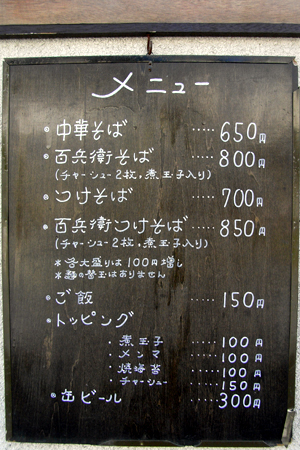 メニュー
中華そば ‥‥‥ 650円
百兵衛そば ‥‥‥ 800円
(チャーシュー2枚,煮玉子入り)
つけそば ‥‥‥ 700円
百兵衛つけそば ‥‥‥ 850円
(チャーシュー2枚,煮玉子入り)
*各大盛りは100円増し
*麺の替玉はありません
ご飯 ‥‥‥ 150円
トッピング
・煮玉子 ‥‥‥ 100円
・メンマ ‥‥‥ 100円
・焼海苔 ‥‥‥ 100円
・チャーシュー ‥‥‥ 150円
缶ビール ‥‥‥ 300円